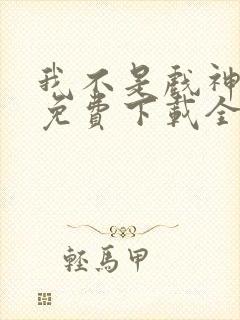 我不是戲神
免費下載全
輕馬甲